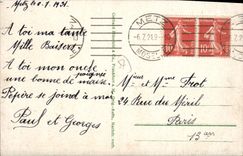 Metz le 6.7.1921.
A toi ma tante
Mille Baisers
A toi mon oncle
une bonne poignée
de main
Pépère se joint à moi
Paul et Georges
METZ
6.7.21
10
10
Mme et Mr Frot
24 Rue du Miril
Paris
13